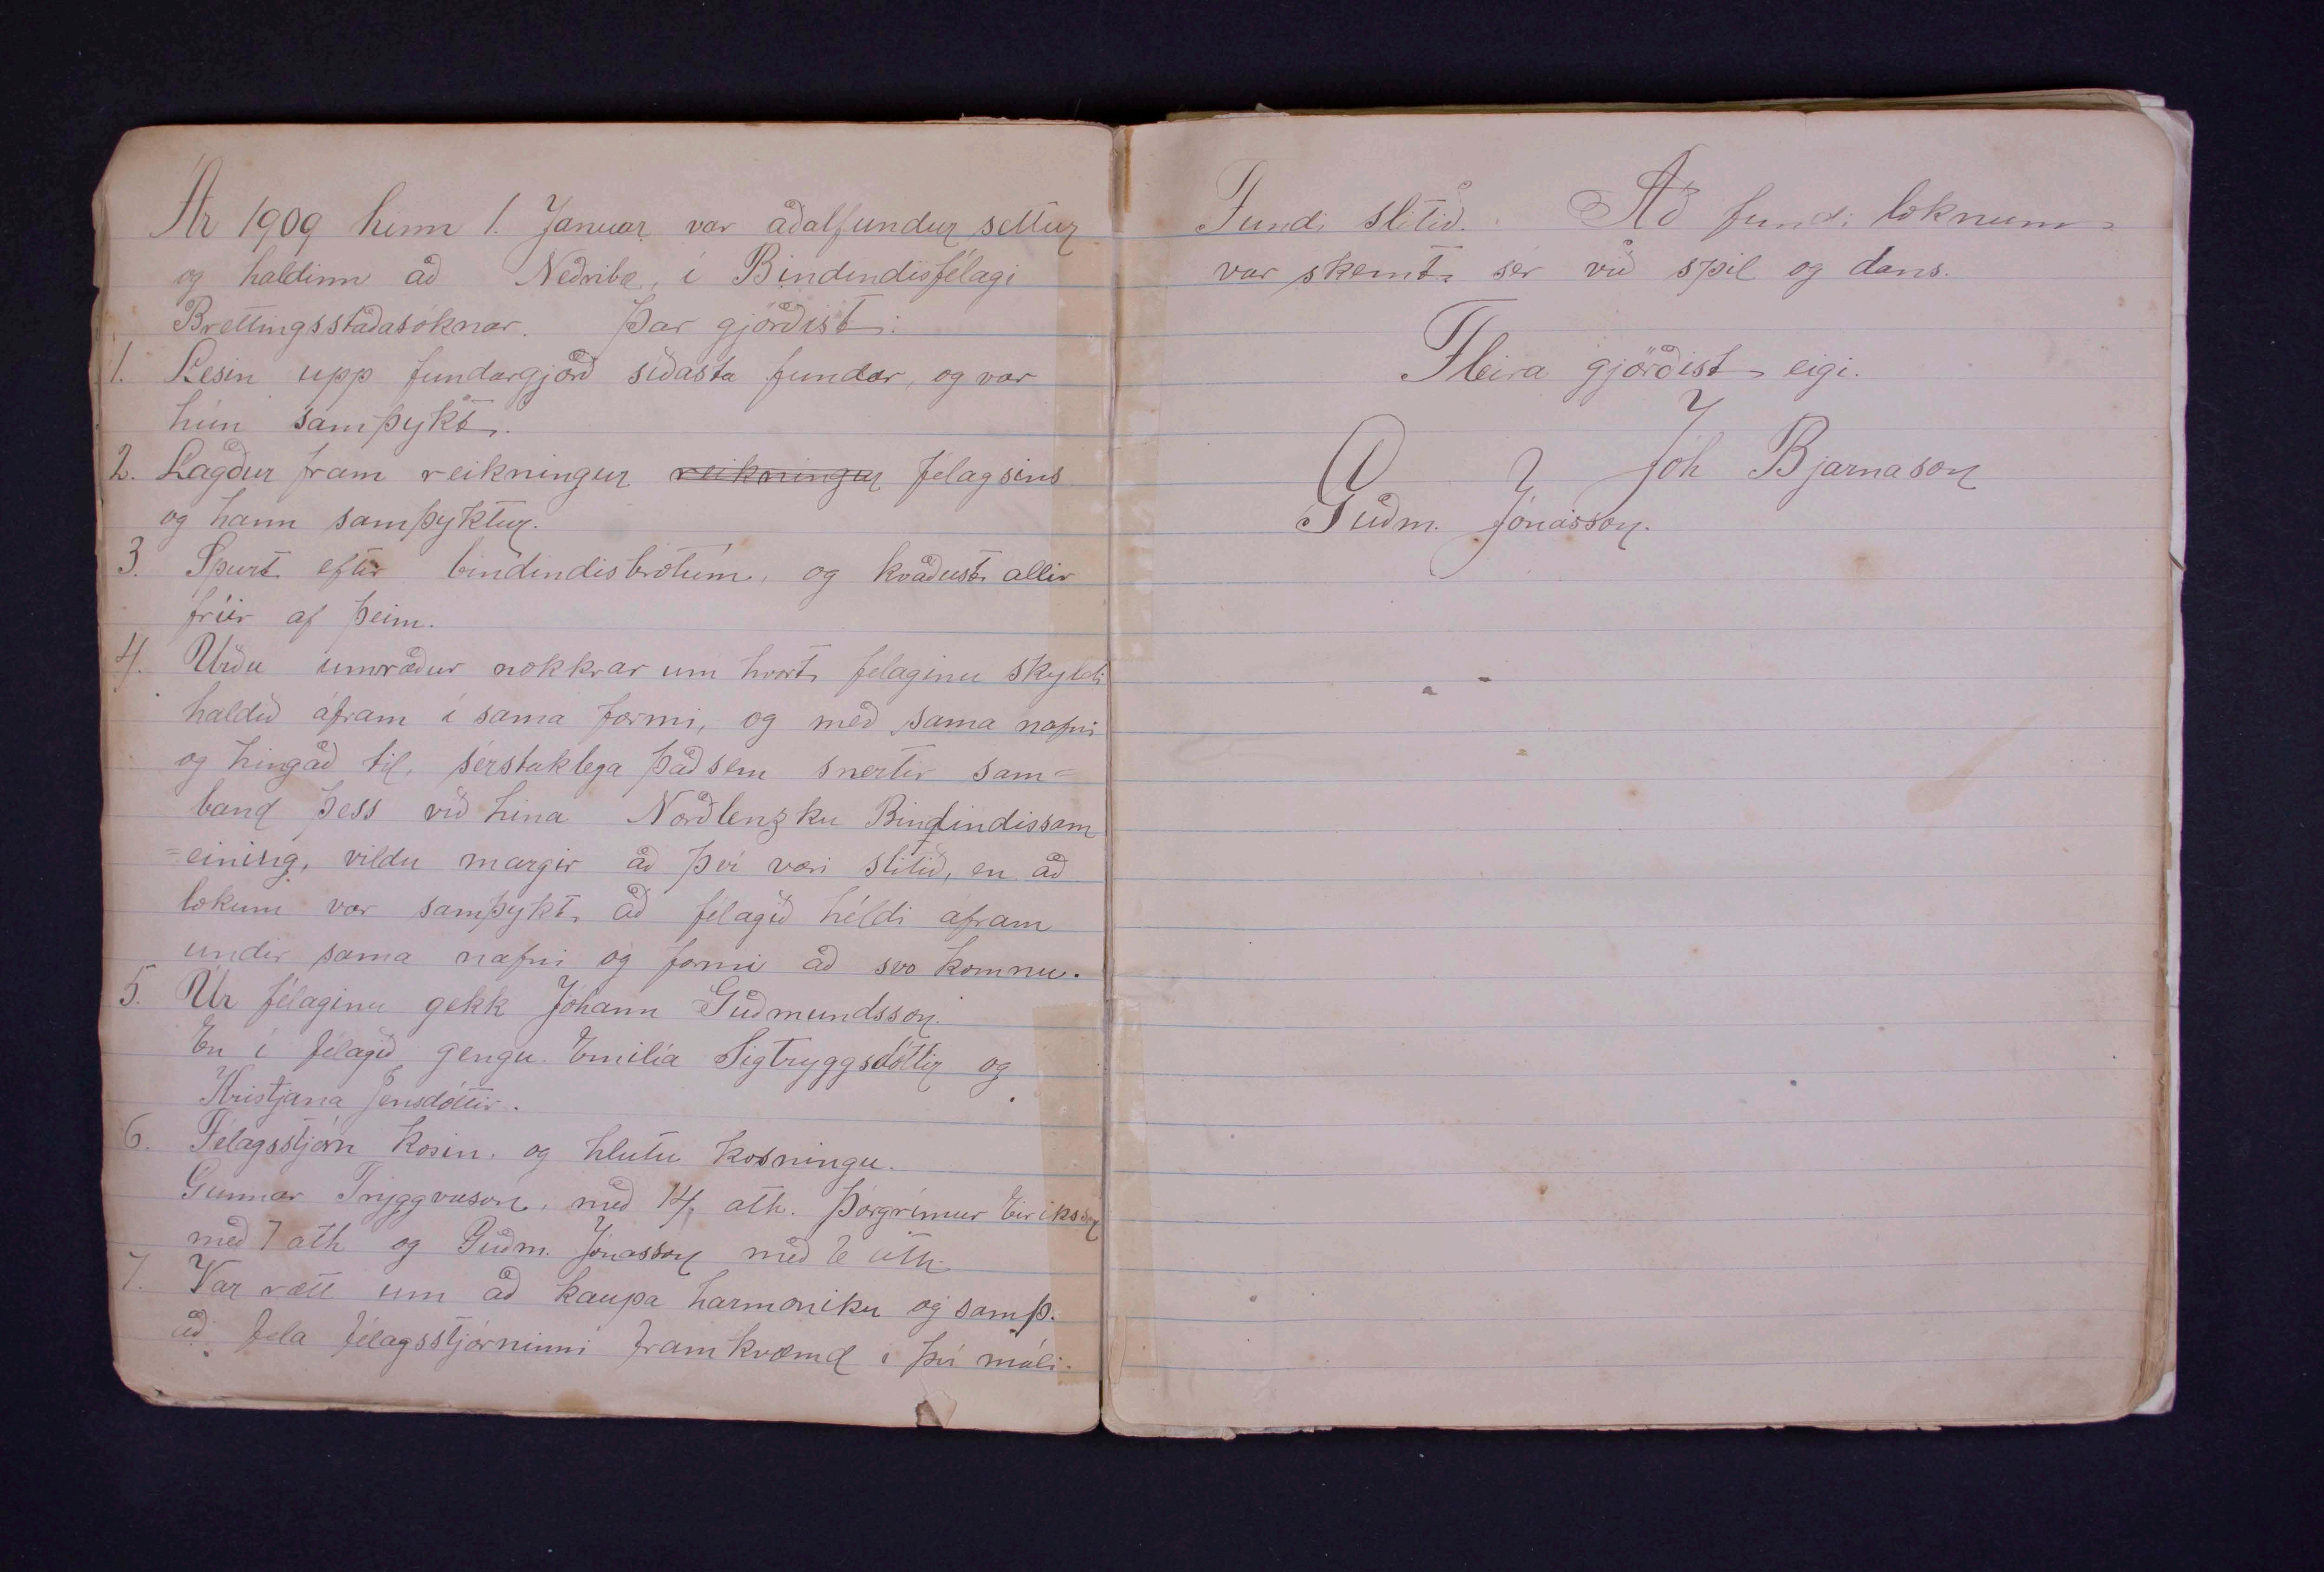 Ár 1909 hinn 1. Januar var aðalfundur settur
og haldinn að Neðribæ, í Bindindisfélagi
Brettingsstaðasóknar. Þar gjörðist:
1. Lesin upp fundargjörð síðasta fundar, og var
hún samþykt.
2. Lagður fram reikningur reikningur félagsins
og hann samþyktur.
3. Spurt eftir bindindisbrotum, og kváðust allir
fríir af þeim.
4. Urðu umræður nokkrar um hvort félaginu skyldi
haldið áfram í sama formi, og með sama nafni
og hingað til, sérstaklega það sem snertir sam=
band þess við hina Norðlenzku Bindindissam
=einisg, vildu margir að því væri slitið, en að
lokum var samþykt að félagið héldi áfram
undir sama nafni og formi að svo komnu.
5. Úr félaginu gekk Jóhann Guðmundsson.
En í félagið gengu Emilía Sigtryggsdóttir og
Kristjana Jensdóttir.
6. Félagsstjórn kosin, og hlutu kosningu.
Gunnar Tryggvason, með 14 atk. Þórgrímur Eiríksson
með 7 atk og Guðm. Jónasson með 6 atk.
7. Var rætt um að kaupa harmoniku og samþ.
að fela félagsstjórninni framkvæmd í því máli.
Fundi slitið. Að fundi loknum
var skemt sér við spil og dans.
Fleira gjörðist eigi.
Jóh Bjarnason
Guðm. Jónasson.